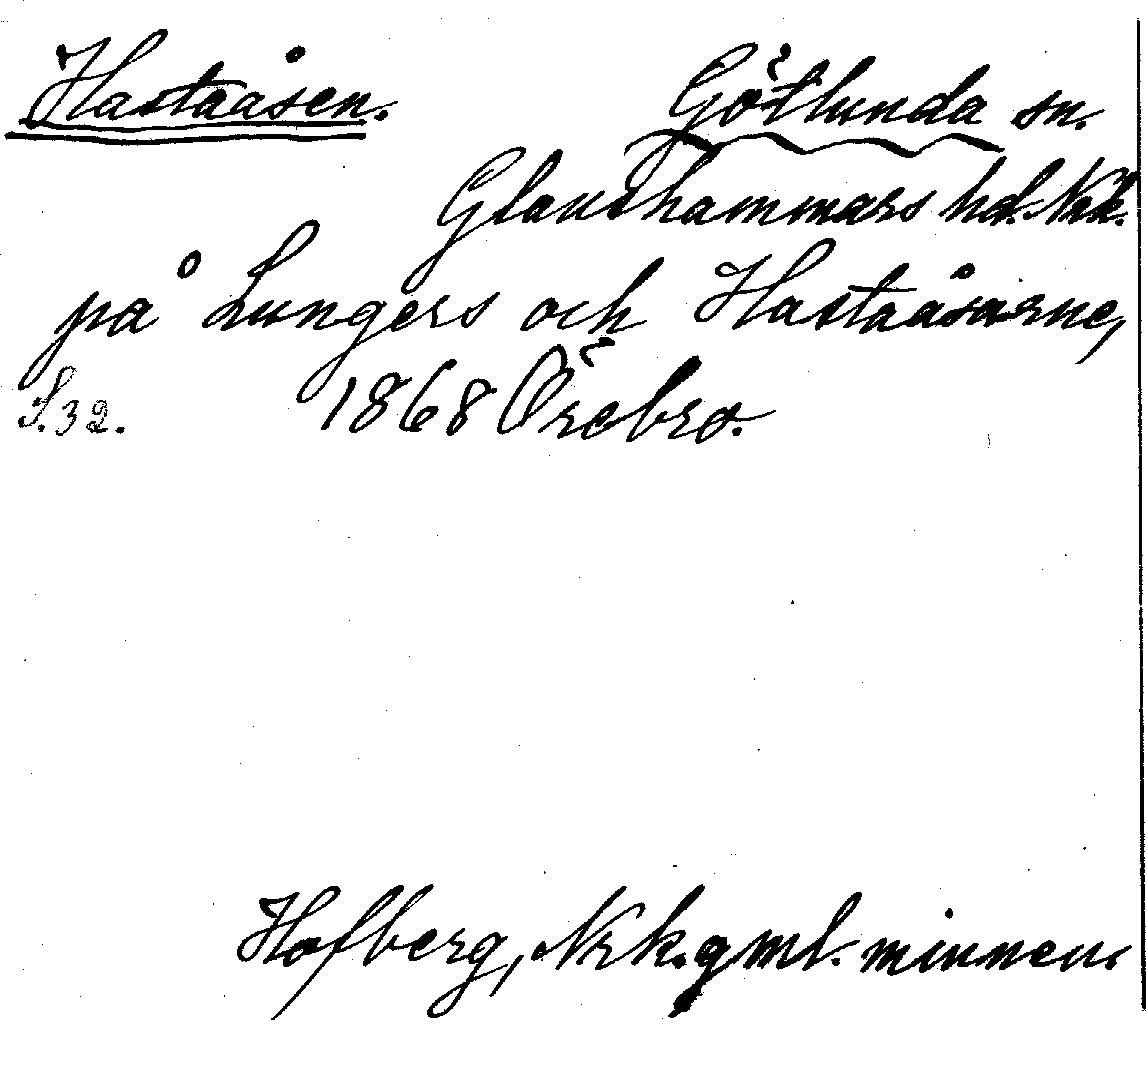 Hastaåsen. Götlunda sn.
Glanshammars hd. Nrk.
på Lungers och Hastaåsarne,
S. 32. 1868 Örebro.
Hofberg, Nrk. gml. minnen.